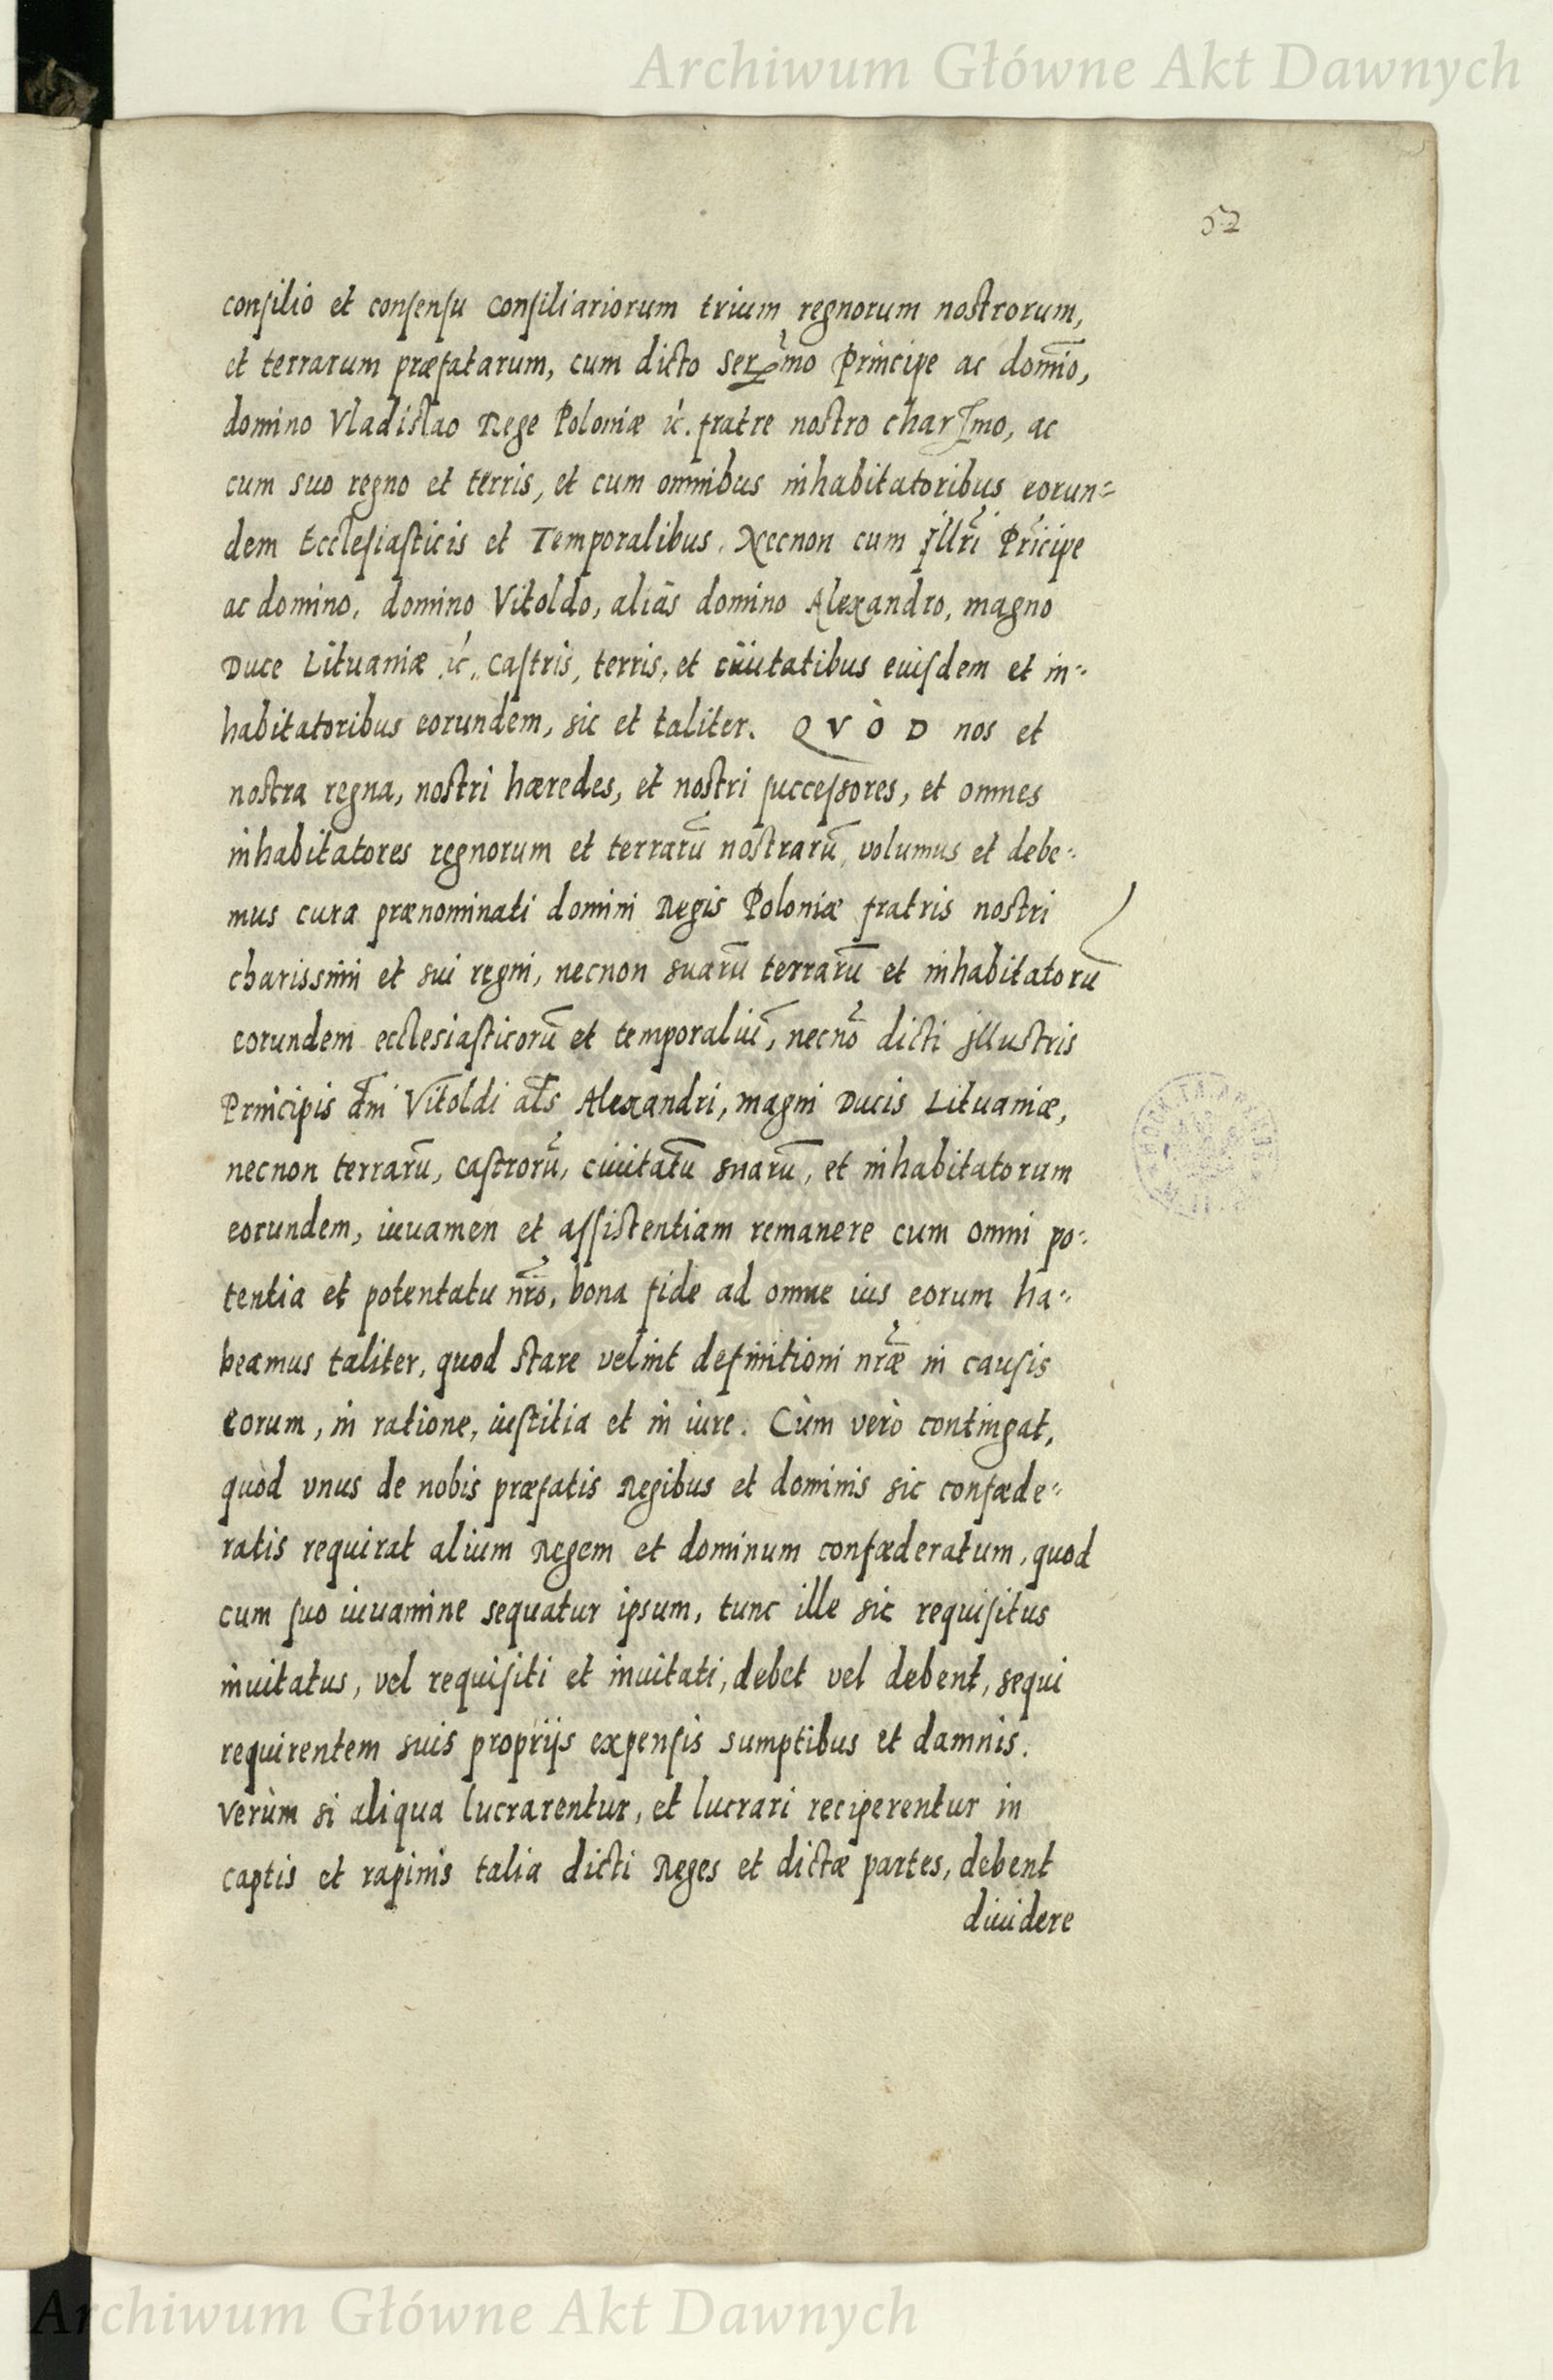 Archiwum Główne Akt Dawnych
52
consilio et consensu consiliariorum trium regnorum nostrorum,
et terrarum præfatarum, cum dicto Ser.mo Principe ac domĩo,
domino Vladislao Rege Poloniæ &c. fratre nostro char.mo, ac
cum suo regno et terris, et cum omnibus inhabitatoribus eorun=
dem Ecclesiasticis et Temporalibus. Necnon cum Illr̃i Prĩcipe
ac domino, domino Vitoldo, aliàs domino Alexandro, magno
Duce Lituaniæ &c. castris, terris, et ciuitatibus euisdem et in=
habitatoribus eorundem, sic et taliter. QVÒD nos et
nostra regna, nostri hæredes, et nostri successores, et omnes
inhabitatores regnorum et terrarũ nostrarũ, volumus et debe=
mus cura prænominati domini Regis Poloniæ fratris nostri
charissimi et sui regni, necnon suarũ terrarũ et inhabitatorũ
eorundem ecclesiasticorũ et temporaliũ, necnõ dicti illustris
Principis dñi Vitoldi al̃s Alexandri, magni Ducis Lituaniæ,
necnon terrarũ, castrorũ, ciuitatũ suarũ, et inhabitatorum
eorundem, iuuamen et assistentiam remanere cum omni po=
tentia et potentatu nr̃o, bona fide ad omne ius eorum ha=
beamus taliter, quod stare velint definitioni nr̃æ in causis
eorum, in ratione, iustitia et in iure. Cùm verò contingat,
quòd vnus de nobis præfatis Regibus et dominis sic confæde=
ratis requirat alium Regem et dominum confæderatum, quod
cum suo iuuamine sequatur ipsum, tunc ille sic requisitus
inuitatus, vel requisiti et inuitati, debet vel debent, sequi
requirentem suis proprijs expensis sumptibus et damnis.
Verùm si aliqua lucrarentur, et lucrari reciperentur in
captis et rapinis talia dicti Reges et dictæ partes, debent
diuidere
Archiwum Główne Akt Dawnych